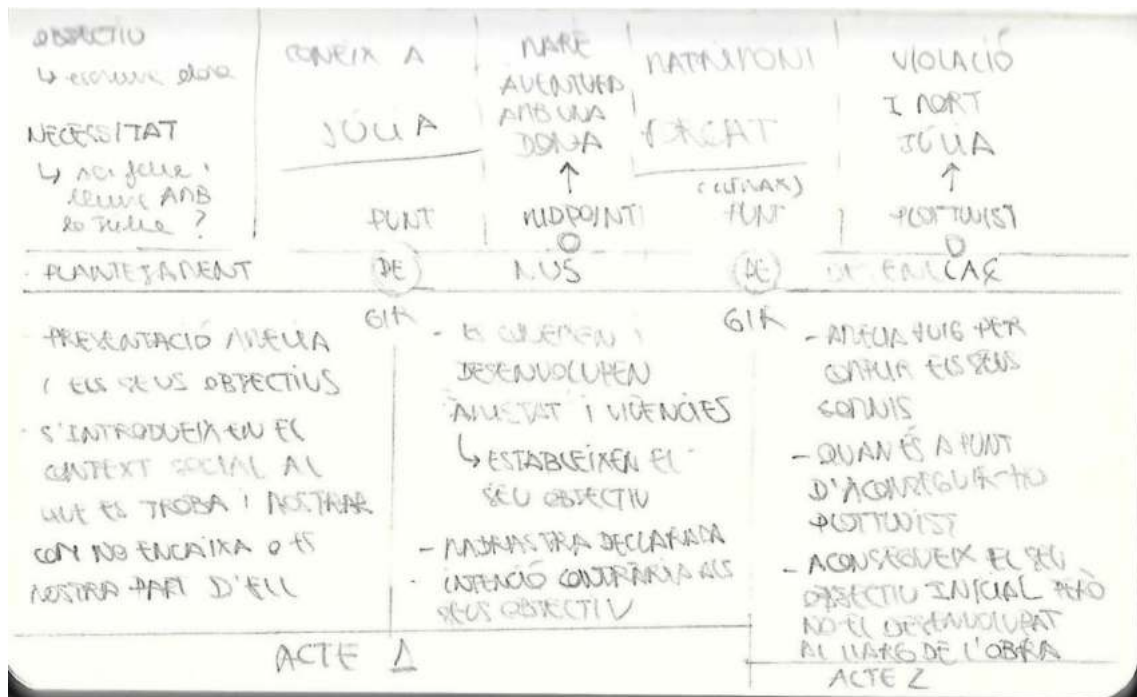 OBJECTIU
↳ escriure obra
NECESSITAT
↳ ser feliç i
lliure AMB
la Júlia ?
CONEIX A
JÚLIA
PUNT
DE
GIR
MARE
AVENTURA
AMB UNA
DONA
↑
MIDPOINT
MATRIMONI
FORÇAT
(CLÍMAX)
PUNT
DE
GIR
VIOLACIÓ
I MORT
JÚLIA
↑
PLOTTWIST
PLANTEJAMENT
NUS
DESENLLAÇ
- PRESENTACIÓ AMELIA
I ELS SEUS OBJECTIUS
- S'INTRODUEIX EN EL
CONTEXT SOCIAL AL
QUE ES TROBA I MOSTRAR
COM NO ENCAIXA O ES
MOSTRA PART D'ELL
- ES CONEIXEN I
DESENVOLUPEN
AMISTAT I VIVÈNCIES
↳ ESTABLEIXEN EL
SEU OBJECTIU
- MADRASTRA DECLARADA
- INTENCIÓ CONTRÀRIA ALS
SEUS OBJECTIU
- AMELIA FUIG PER
COMPLIR ELS SEUS
SOMNIS
- QUAN ÉS A PUNT
D'ACONSEGUIR-HO
PLOTTWIST
- ACONSEGUEIX EL SEU
OBJECTIU INICIAL PERÒ
NO EL DESENVOLUPAT
AL LLARG DE L'OBRA
ACTE 1
ACTE 2